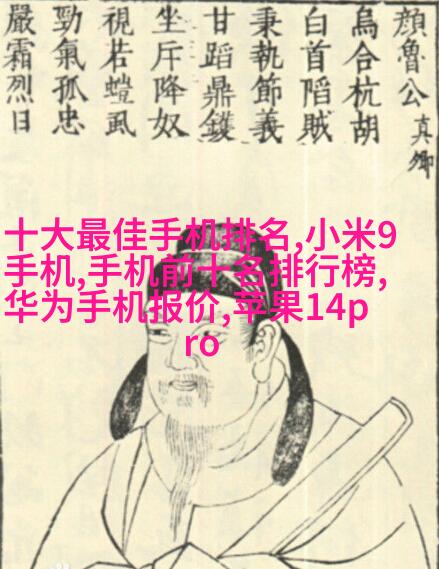 顔魯公真卿
烏合杭胡
白首䧟賊
秉執節義
甘蹈鼎鑊
坐斥降奴
視若螘虱
勁氣孤忠
嚴霜烈日
十大最佳手机排名,小米9
手机,手机前十名排行榜,
华为手机报价,苹果14p
ro